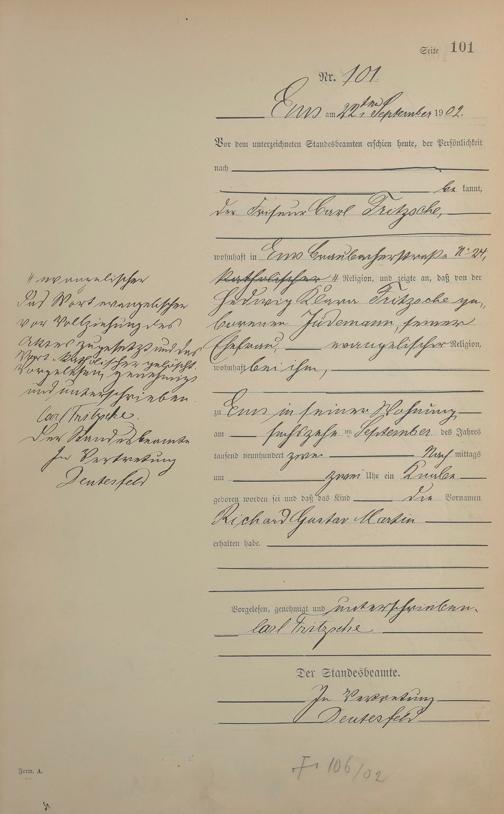 Seite 101
Nr. 101
Ems am 22ten September 1902.
Vor dem unterzeichneten Standesbeamten erschien heute, der Persönlichkeit
nach
be kannt,
der Friseur Carl Fritzsche,
wohnhaft in Ems Braubacherstraße No 24,
katholischer Religion, und zeigte an, daß von der
Hedwig Klara Fritzsche ge-
borenen Jüdemann, seiner
Ehefrau evangelischer Religion,
wohnhaft bei ihm,
zu Ems in seiner Wohnung
am sechszehn ten September des Jahres
tausend neunhundert zwei Nach mittags
um zwei Uhr ein Knabe
geboren worden sei und daß das Kind die Vornamen
Richard Gustav Martin
erhalten habe.
evangelischer
Das Wort evangelischer
vor Vollziehung des
Aktes zugesetzt und das
Wort katholischer gelöscht.
Vorgelesen, genehmigt
und unterschrieben.
Carl Fritzsche.
Der Standesbeamte
In Vertretung
Deutesfeld
Vorgelesen, genehmigt und unterschrieben.
Carl Fritzsche
Der Standesbeamte.
In Vertretung
Deutesfeld
Form. A.
106/02